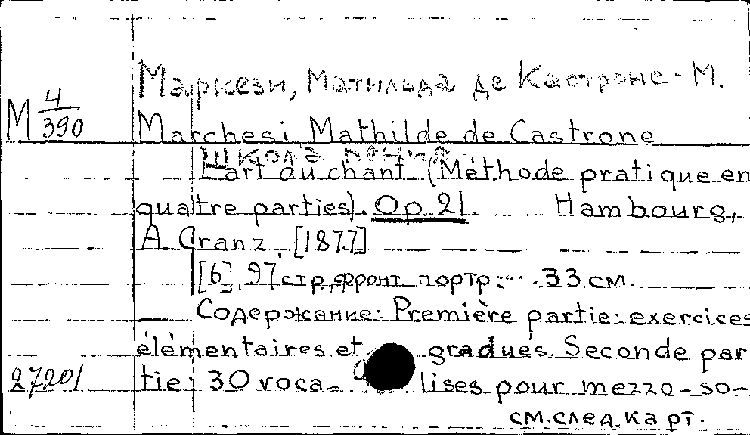 Маркези, Матильда де Кастроне- М.
М 4/390
Marchesi Mathilde de Castrone
Школа пения
L'art du chant (Méthode pratique en
quatre parties). Op. 21 Hambourg,
A Cranz [1877]
[6], 97 стр, фронт. портр. 33 см.
Содержание: Première partie: exercices
élémentaires et gradués Seconde par
27201
tie: 30 voca- lises pour mezzo-so-
см. след. карт.